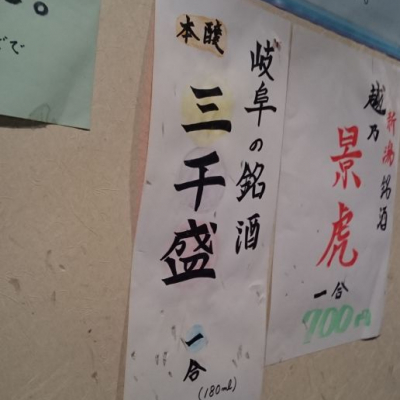 新潟銘酒
越乃
景虎
一合
700円
岐阜の銘酒
本醸
三千盛
一合
(180ml)